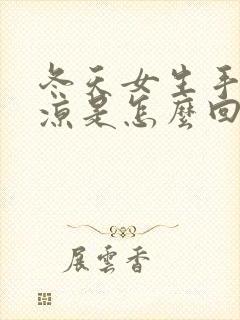 冬天女生手
涼是怎麼回
展雲香